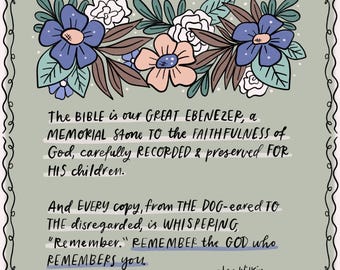 The BIBLE is our GREAT EBENEZER, a
MEMORIAL stone TO the FAITHFULNESS of
God, carefully RECORDED & preserved FOR
HIS children.
And EVERY copy, from THE DOG-eared TO
THE disregarded, is WHISPERING,
"Remember." REMEMBER the GOD who
REMEMBERS you.